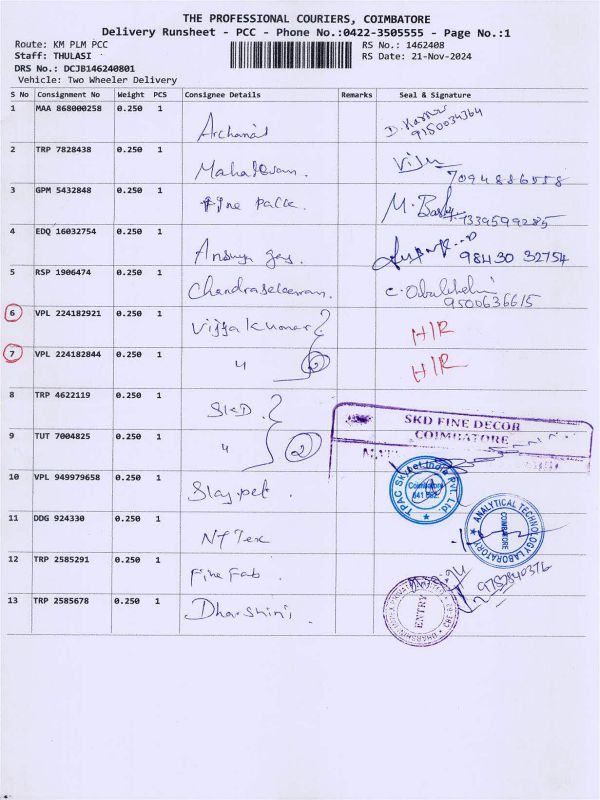 THE PROFESSIONAL COURIERS, COIMBATORE
Delivery Runsheet - PCC - Phone No.:0422-3505555 - Page No.:1
Route: KM PLM PCC
RS No.: 1462408
Staff: THULASI
RS Date: 21-Nov-2024
DRS No.: DCJB146240801
Vehicle: Two Wheeler Delivery
S No Consignment No Weight PCS Consignee Details Remarks Seal & Signature
1 MAA 868000258 0.250 1 Archana's D. Kumar 9150034364
2 TRP 7828438 0.250 1 Mahadevan. Viju 7094886558
3 GPM 5432848 0.250 1 fine pack. M. Bask 9339599285
4 EDQ 16032754 0.250 1 98430 32754
5 RSP 1906474 0.250 1 Chandraseleeran. 9500636615
6 VPL 224182921 0.250 1 Vijjakumar
7 VPL 224182844 0.250 1 " 2
8 TRP 4622119 0.250 1 SKD
SKD FINE DECOR
COIMBATORE
9 TUT 7004825 0.250 1 " 2
10 VPL 949979658 0.250 1 Skypet. TPAC Skypet India Pvt. Ltd. Coimbatore 641
11 DDG 924330 0.250 1 NTTex ANALYTICAL TECHNOLOGY LABORATORY COIMBATORE
12 TRP 2585291 0.250 1 Fine Fab. 9787840376
13 TRP 2585678 0.250 1 Dharshini. ENTRY